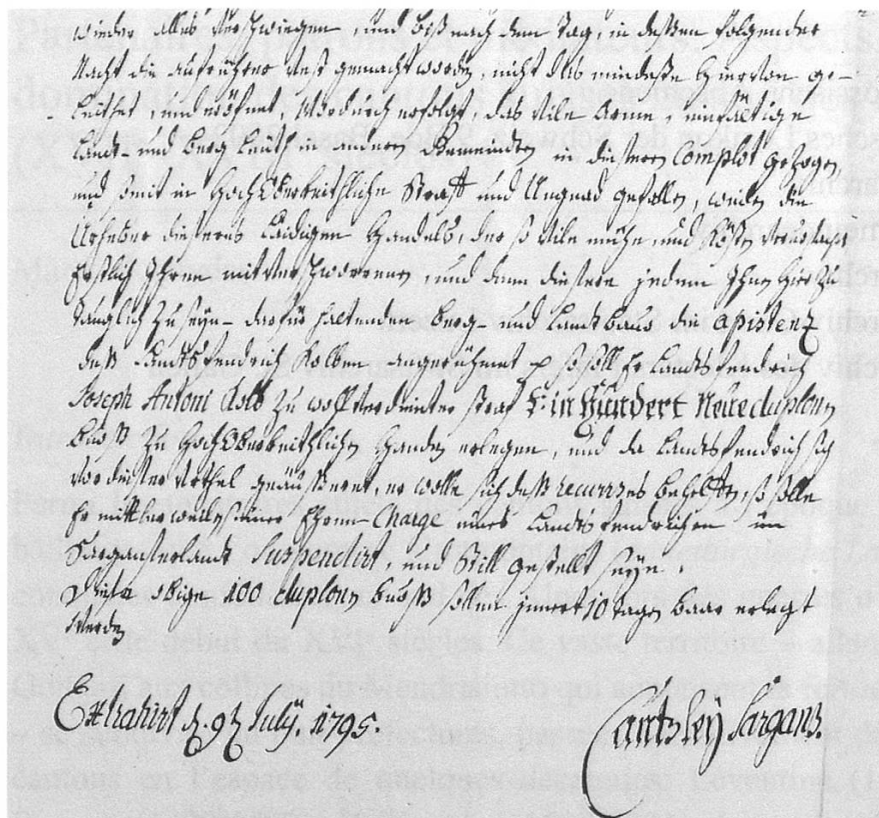 wieder alles verschwiegen, und biß nach dem Tag, in deßen folgender
Nacht die aufrührer vest gemacht worden, nicht das mindeste hiervon ge-
und eröfnet, wordurch erfolgt, das vile arme, einfältige
Land- und berg Leuth in anderen Gemeindten in diseren Complot gezogen
und somit in hochOberkeithliche Straff und Ungnad gefallen, weilen die
Urheber dieseres Leidigen Handels, der so vile mühe, und Kösten verursacht
Erstlich Ihren mitverschworrenen, und dann diesere jedem Ihnen hierzu
tauglich zu seyn- darfür haltenden berg- und Landtbaur die apistenz
deß Landtsfendrich Kolben angerühmt p so soll Er Landtsfendrich
Joseph Antoni Kolb zu wollverdienter straf Ein Hundert Neüe duplonen
buoß zu hochOberkeithlichen Handen erlegen, und da Landtsfendrich sich
vor diser Urthel geäußeret, er wolle sich deß recurses behelffen, so solle
Er mittlerweile seiner Ehren Charge eines Landtsfendrichen im
Sarganserlandt Suspendirt, und Still gestellt seyn.
obige 100 duplonen buoß sollen innert 10 tagen baar erlegt
werden
Extrahirt d. 9t July 1795.
Cantzley Sargans.